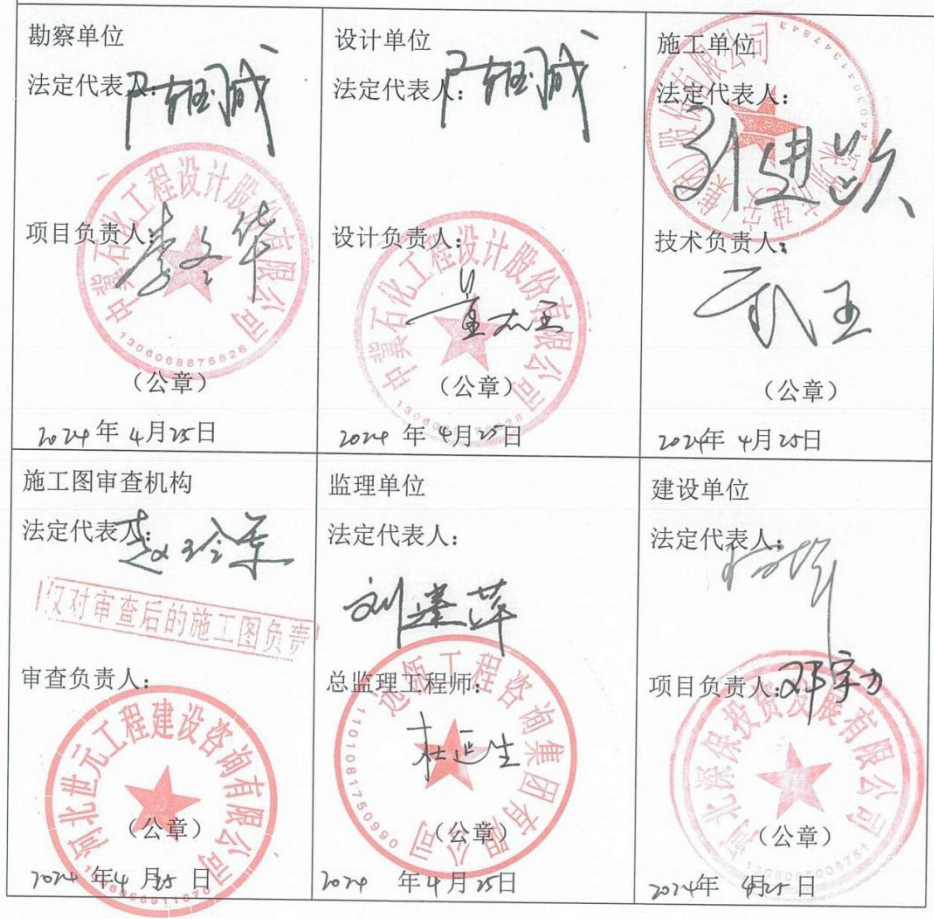 勘察单位
法定代表人：
项目负责人：
李文华
中冀石化工程设计股份有限公司
1306068876826
（公章）
2024年4月25日
设计单位
法定代表人：
设计负责人：
中冀石化工程设计股份有限公司
（公章）
2024年4月25日
施工单位
法定代表人：
技术负责人：
（公章）
2024年4月25日
施工图审查机构
法定代表人：
赵玲军
仅对审查后的施工图负责
审查负责人：
河北世元工程建设咨询有限公司
（公章）
2024年4月25日
监理单位
法定代表人：
总监理工程师：
杜延生
远领工程咨询集团有限公司
（公章）
2024年4月25日
建设单位
法定代表人：
项目负责人：
邓宇力
河北深保投资发展有限公司
（公章）
2024年4月25日